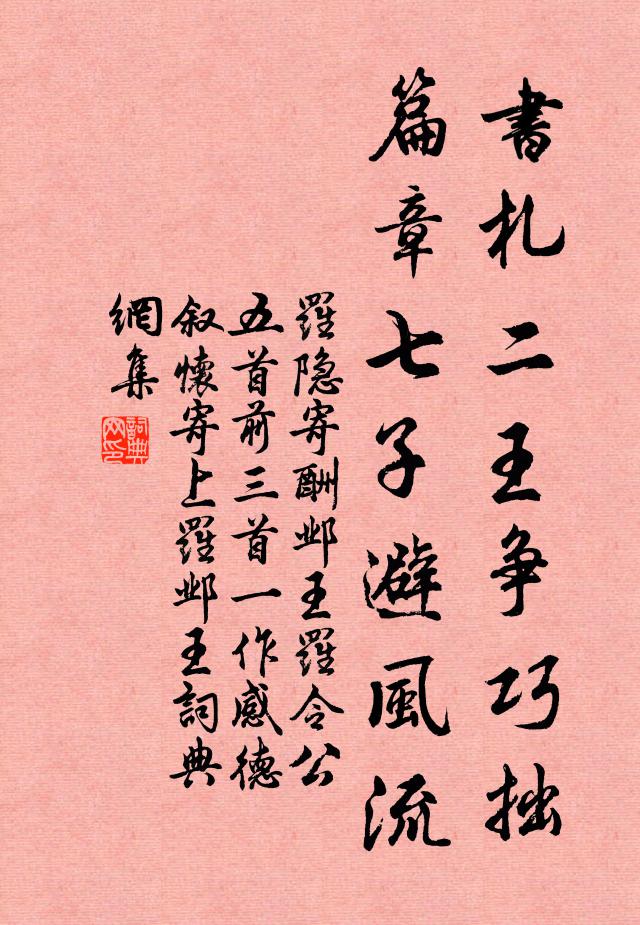 書札二王争巧拙
篇章七子避風流
羅隐寄酬邺王羅令公
五首前三首一作感德
叙懷寄上羅邺王詞典
網集
詞典
网印